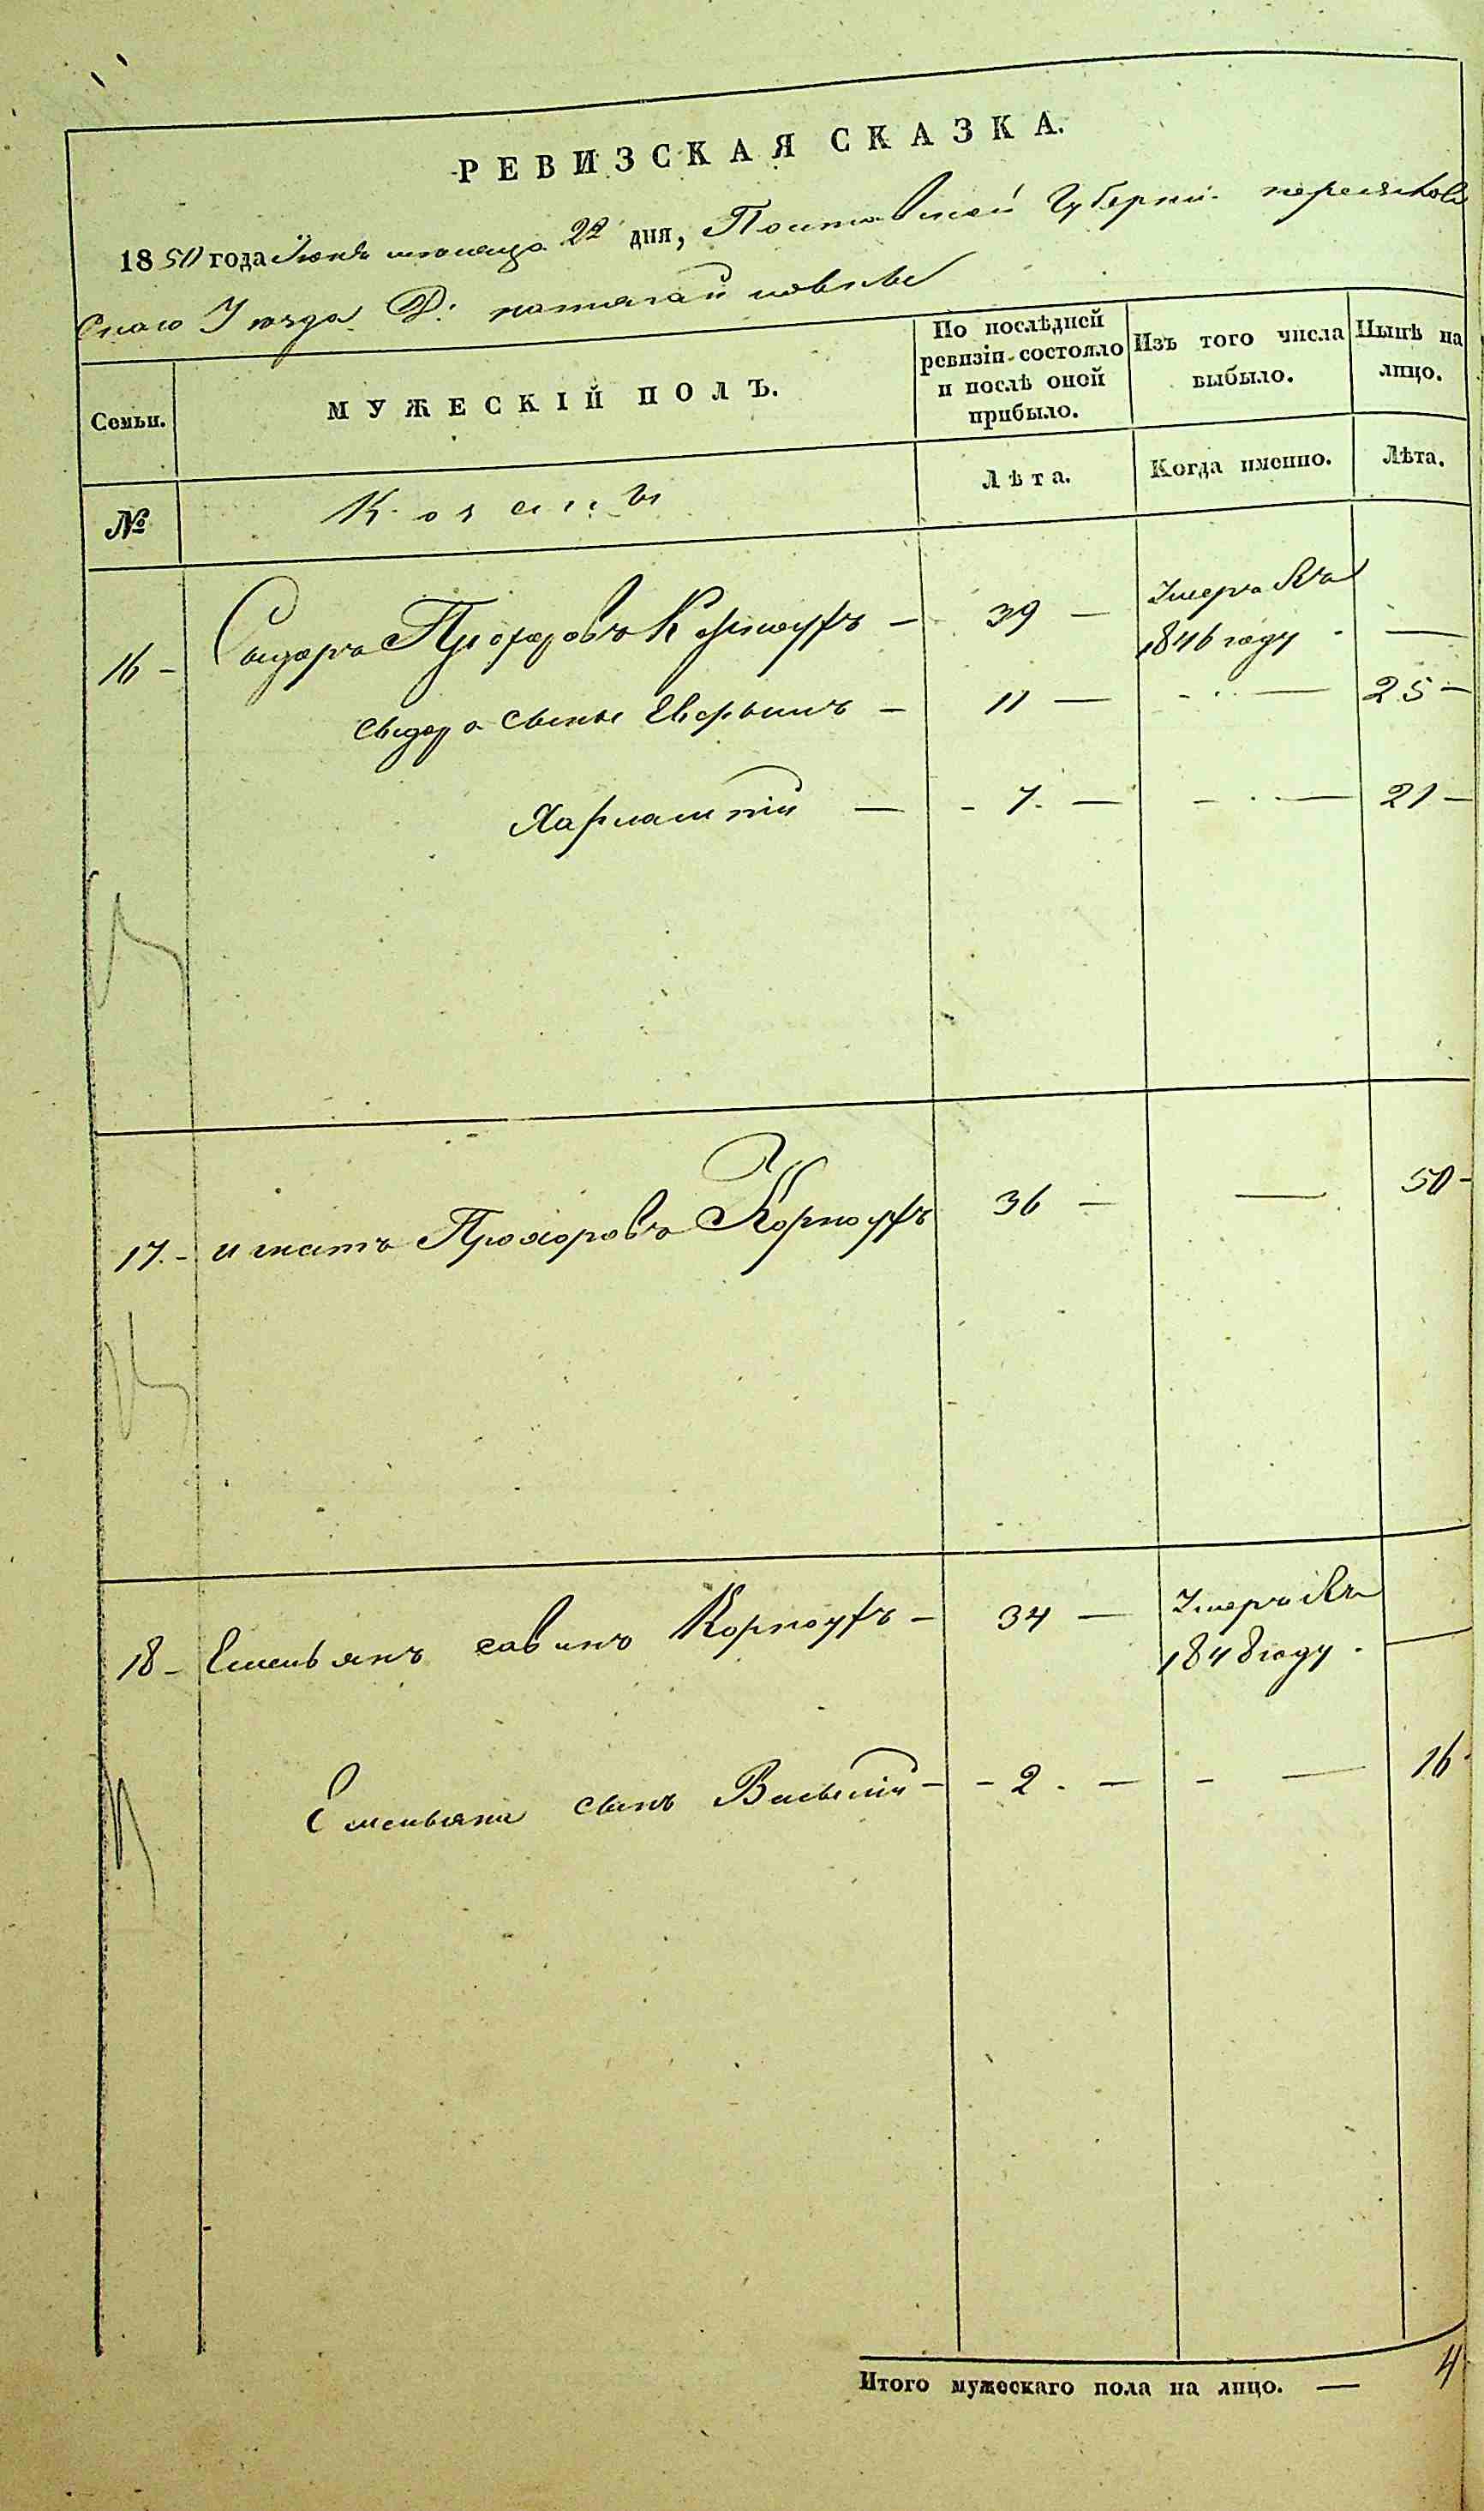 РЕВИЗСКАЯ СКАЗКА.
1850 года Іюня месяца 22 дня, Полтавской Губерніи переяслов
Скаго Уезда Д:
Семьи. МУЖЕСКІЙ ПОЛЪ. По послѣдней ревизіи состояло и послѣ оной прибыло. Изъ того числа выбыло. Нынѣ на лицо.
№ Козаки Лѣта. Когда именно. Лѣта.
16 - Сидоръ Прохоровъ Корноухъ - 39 - Умеръ въ
1846 году - —
сидора сыны - 11 — - — 25 -
Харлампій — - 7. — - — 21 -
17. - игнатъ Прохоровъ Корноухъ 36 - — 50 -
18 - Емельянъ савинъ Корноухъ - 34 - Умеръ въ
1848 году - —
Емельяна сынъ Василій - - 2. — - — 16
Итого мужескаго пола на лицо. — 4